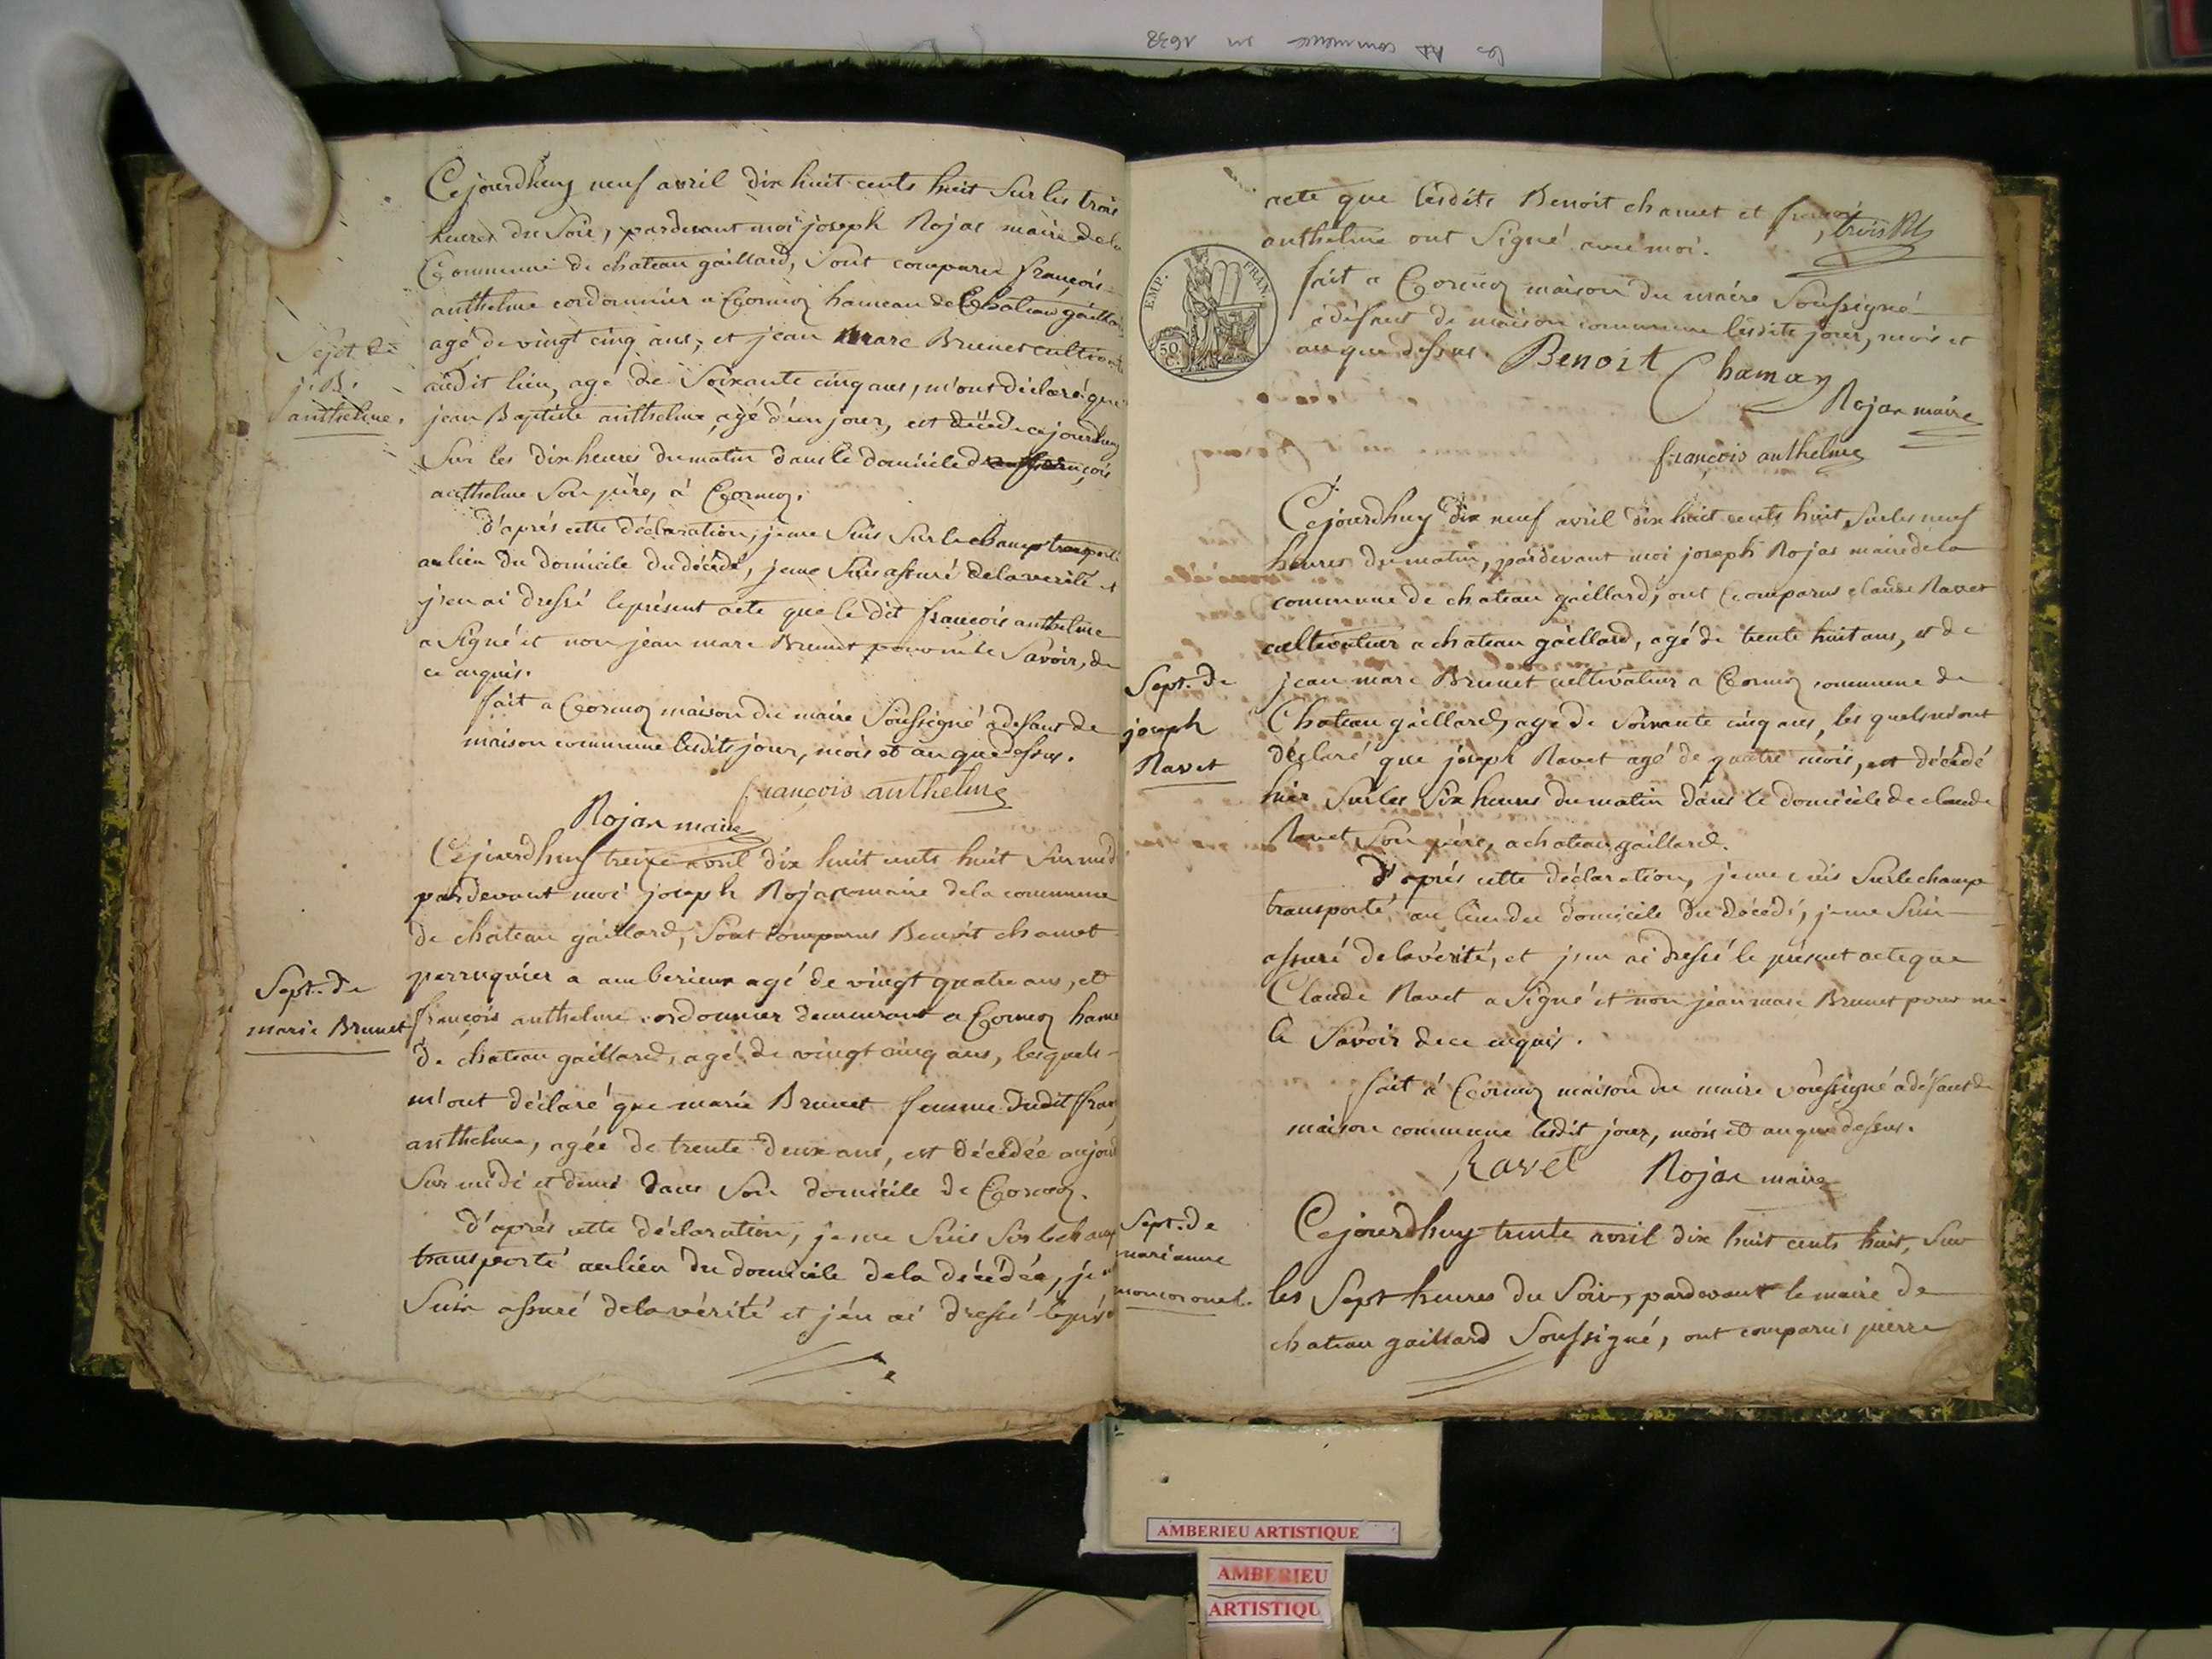 les commence en 1638
Cejourdhuy neuf avril dix huit cents huit sur les trois
heures du Soir, pardevant moi joseph Rojas maire dela
Commune de chateau gaillard, Sont comparu françois
anthelme cordonnier a Cormoz hameau de Chateau gaillar
agé de vingt cinq ans, et jean marc Brunet cultivat
audit lieu, agé de Soixante cinq ans, m'ont déclaré que
jean Baptiste anthelme, agé d'un jour, est décédé cejourdhuy
Sur les dix heures du matin dans le domicile de françois
anthelme Son père, à Cormoz.
Sept. de
j. B.
anthelme.
d'aprés cette déclaration, je me Suis Sur le champ transporté
au lieu du domicile du décédé, je me Suis assuré dela verité et
j'en ai dressé le présent acte que le dit françois anthelme
a Signé et non jean marc Brunet pour ne le Savoir, de
ce enquis.
fait a Cormoz maison du maire Soussigné a defaut de
maison commune lesdits jour, mois et an que dessus.
françois anthelme
Rojas maire
Cejourdhuy treize avril dix huit cents huit Sur midi
pardevant moi joseph Rojas maire dela commune
de chateau gaillard, Sont comparus Benoit chamet
perruquier a amberieux agé de vingt quatre ans, et
françois anthelme cordonnier demeurant a Cormoz hame
de chateau gaillard, agé de vingt cinq ans, lesquels
m'ont déclaré que marie Brunet femme dudit fran
anthelme, agée de trente deux ans, est décédée aujourd
Sur midi et demi dans Son domicile de Cormoz.
Sept. de
marie Brunet
d'aprés cette déclaration, je me Suis Sur le champ
transporté au lieu du domicile dela décédée, je m
Suis assuré dela vérité et j'en ai dressé le prés
acte que lesdits Benoit chamet et françoi
anthelme ont Signé avec moi.
trois
EMP. FRAN.
50 C.
fait a Cormoz maison du maire Soussigné
a défaut de maison commune lesdits jour, mois et
an que dessus.
Benoit Chamay
Rojas maire
françois anthelme
Cejourdhuy dix neuf avril dix huit cents huit Sur les neuf
heures du matin, pardevant moi joseph Rojas maire dela
commune de chateau gaillard, ont Comparus claude Ravet
cultivateur a chateau gaillard, agé de trente huit ans, et de
jean marc Brunet cultivateur a Cormoz commune de
Chateau gaillard, agé de Soixante cinq ans, les quels m'ont
déclaré que joseph Ravet agé de quatre mois, est décédé
hier Sur les Six heures du matin dans le domicile de claude
Ravet Son père, a chateau gaillard.
Sept. de
joseph
Ravet
d'aprés cette déclaration, je me suis Sur le champ
transporté au lieu du domicile du décédé, je me Suis
assuré dela vérité, et j'en ai dressé le présent acte que
Claude Ravet a Signé et non jean marc Brunet pour ne
le Savoir de ce enquis.
fait à Cormoz maison du maire soussigné a défaut de
maison commune lesdit jour, mois et an que dessus.
Ravet Rojas maire
Sept. de
marianne
moncoronel.
Cejourdhuy trente avril dix huit cents huit, Sur
les Sept heures du Soir, pardevant le maire de
chateau gaillard Soussigné, ont comparus pierre
AMBERIEU ARTISTIQUE
AMBERIEU
ARTISTIQU